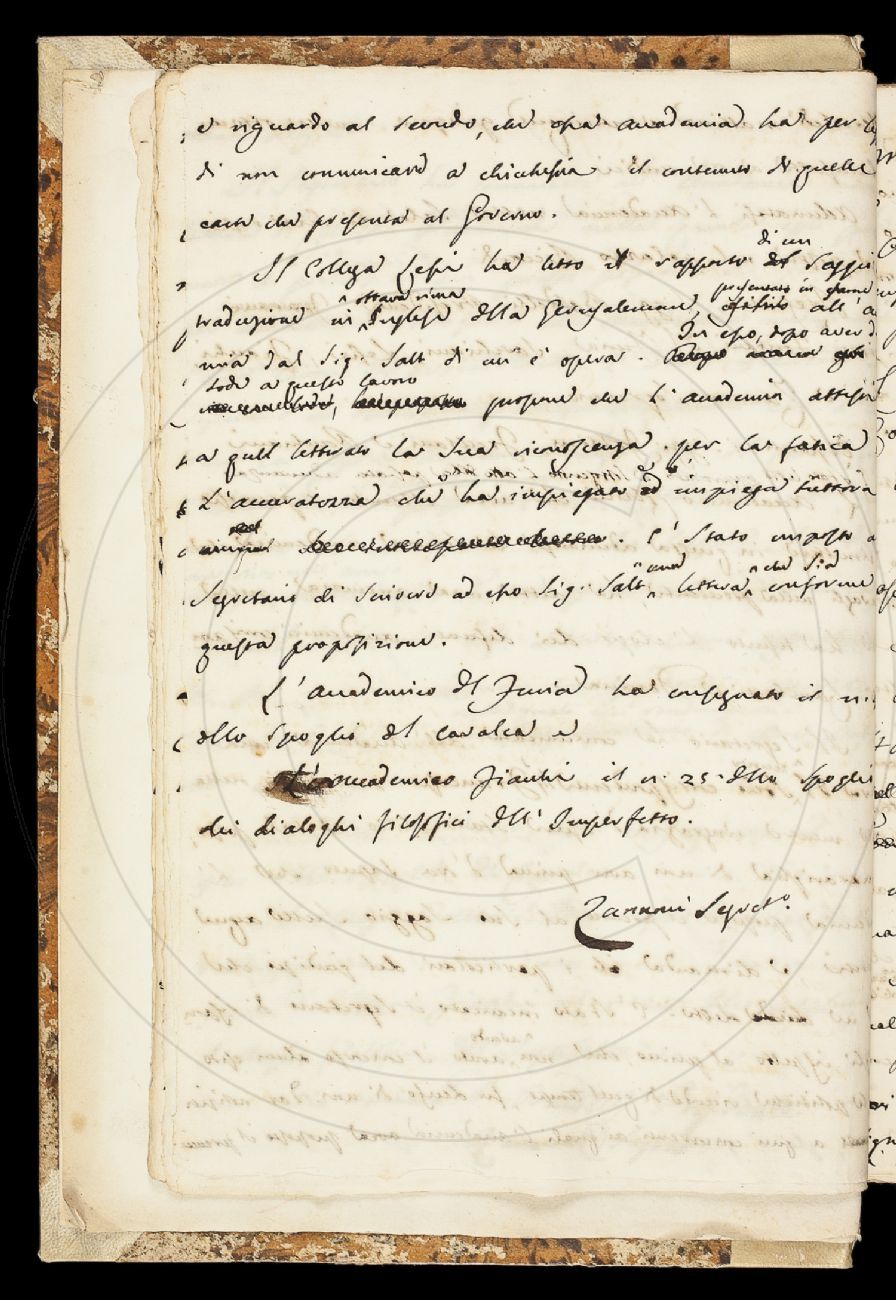 e riguardo al secondo, che essa Accademia ha per
di non comunicare a chicchessia il contenuto di quelle
carte che presenta al Governo.
Il Collega Lessi ha letto il rapporto di un saggio
traduzione in ottava rima Inglese della Gerusalemme, presentato in esame all'
mia dal Sig. Salt di cui è opera. In esso, dopo aver
lode a questo lavoro propone che l'Accademia attesti
a quel letterato la sua riconoscenza per la fatica
l'accuratezza che ha impiegato ed impiega tuttora
. È stato imposto a
Segretario di scrivere ad esso Sig. Salt una lettera che sia conforme
questa proposizione.
L'Accademico del Furia ha consegnato il n.
dello spoglio del Cavalca e
L'Accademico Fiacchi il n. 25. dello spoglio
dei dialoghi filosofici dell'Imperfetto.
Zannoni Segret.º